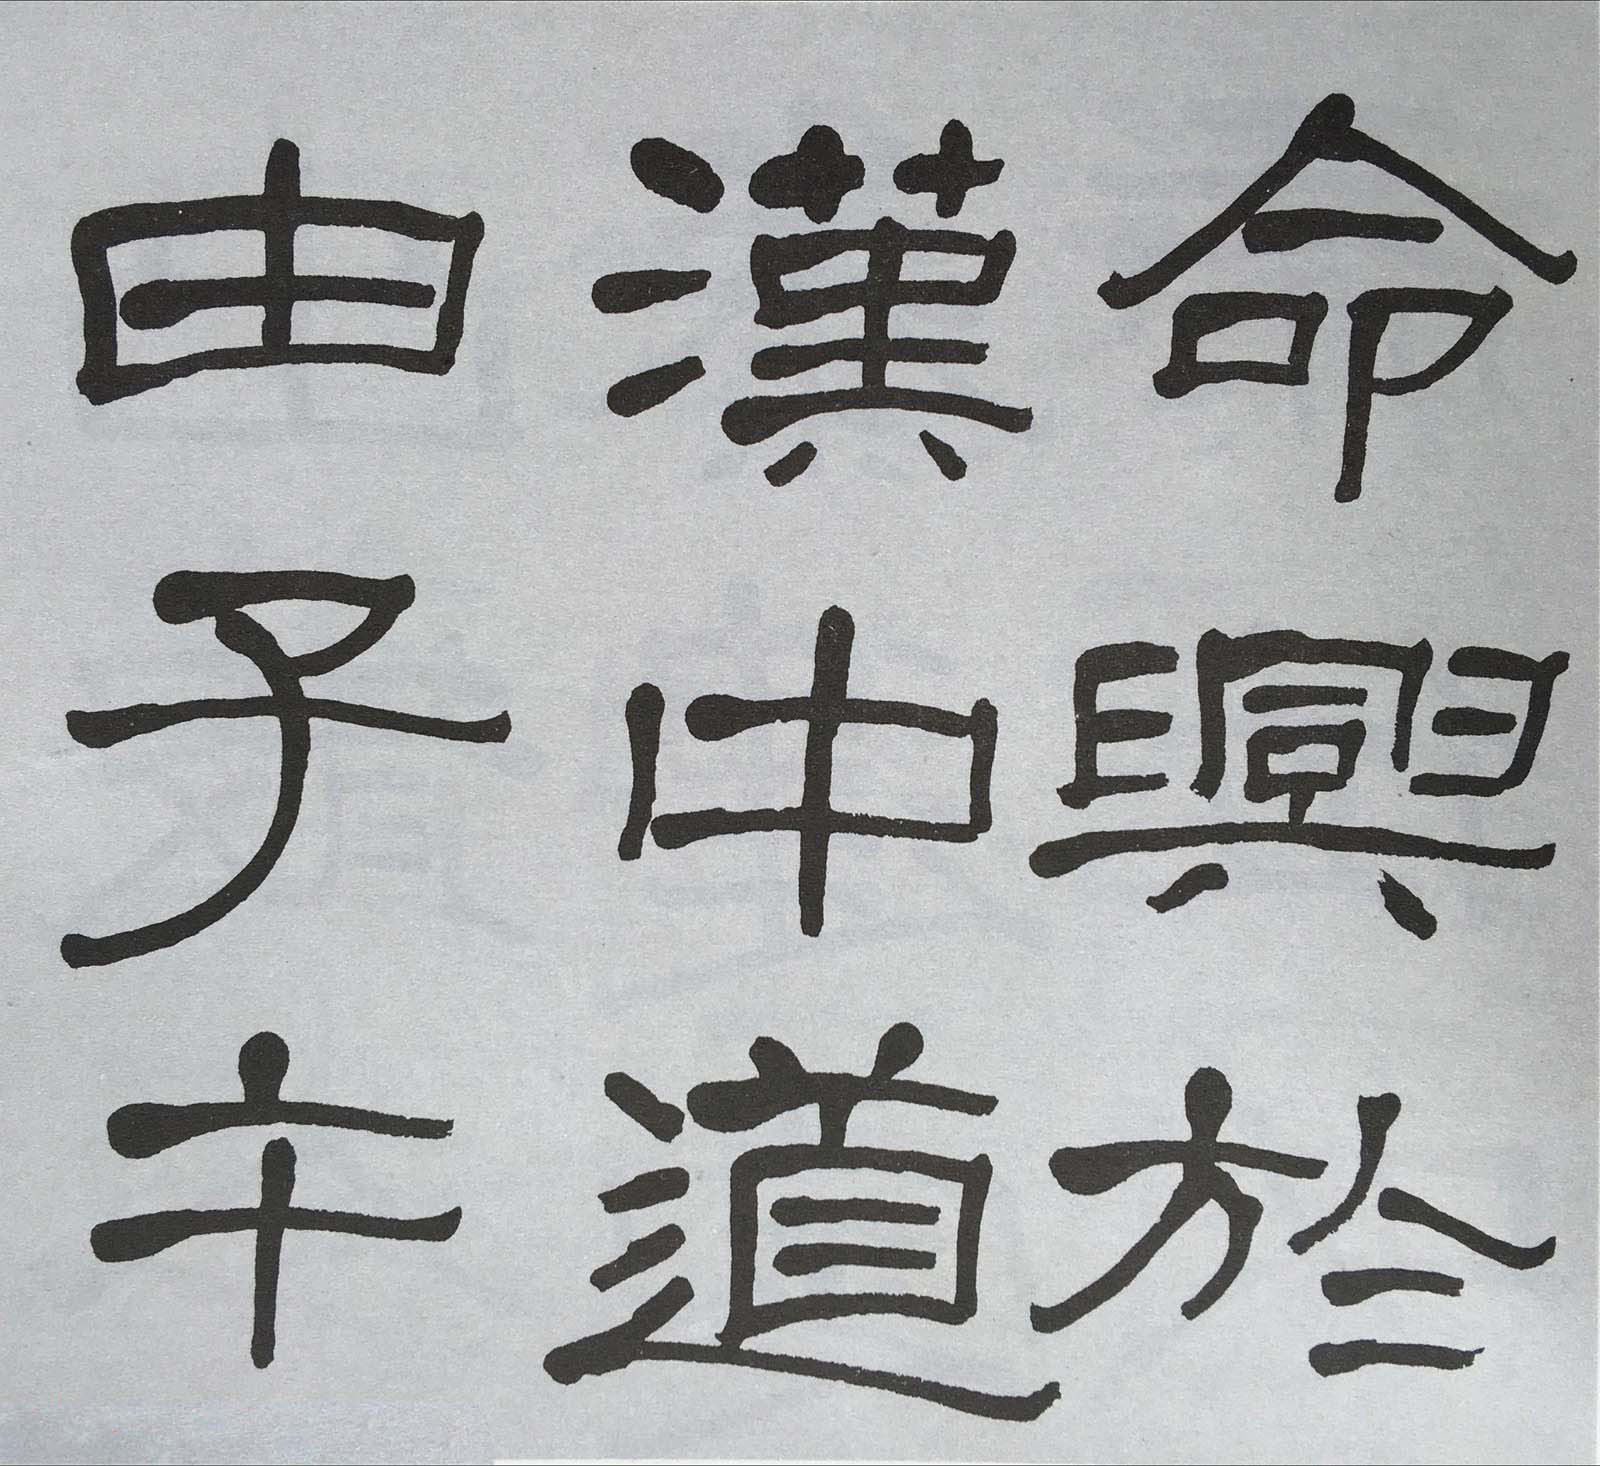 命興於
漢中道
由子午